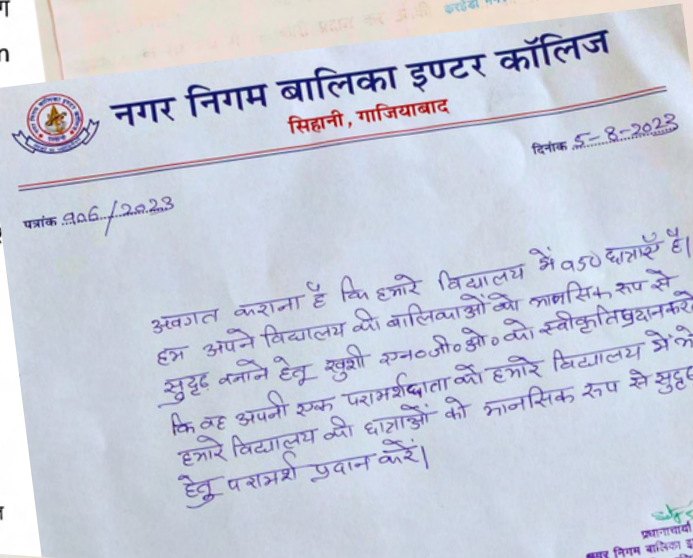 नगर निगम बालिका इण्टर कॉलिज
सिहानी, गाजियाबाद
दिनांक 5-8-2023
पत्रांक 906/2023
अवगत कराना है कि हमारे विद्यालय में 950 छात्राएँ है।
हम अपने विद्यालय की बालिकाओं को मानसिक रूप से
सुदृढ़ बनाने हेतू खुशी एन०जी०ओ० को स्वीकृति प्रदान करते
कि वह अपनी एक परामर्शदाता को हमारे विद्यालय में
हमारे विद्यालय की छात्राओं को मानसिक रूप से सुदृढ़
हेतू परामर्श प्रदान करें।
प्रधानाचार्या
नगर निगम बालिका